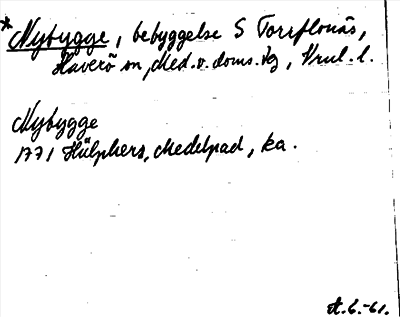 *Nybygge, bebyggelse S Torrflonäs,
Haverö sn, Med. v. doms. tg, Vrnl. l.
Nybygge
1771 Hülphers, Medelpad, ka.
A.C.-61.